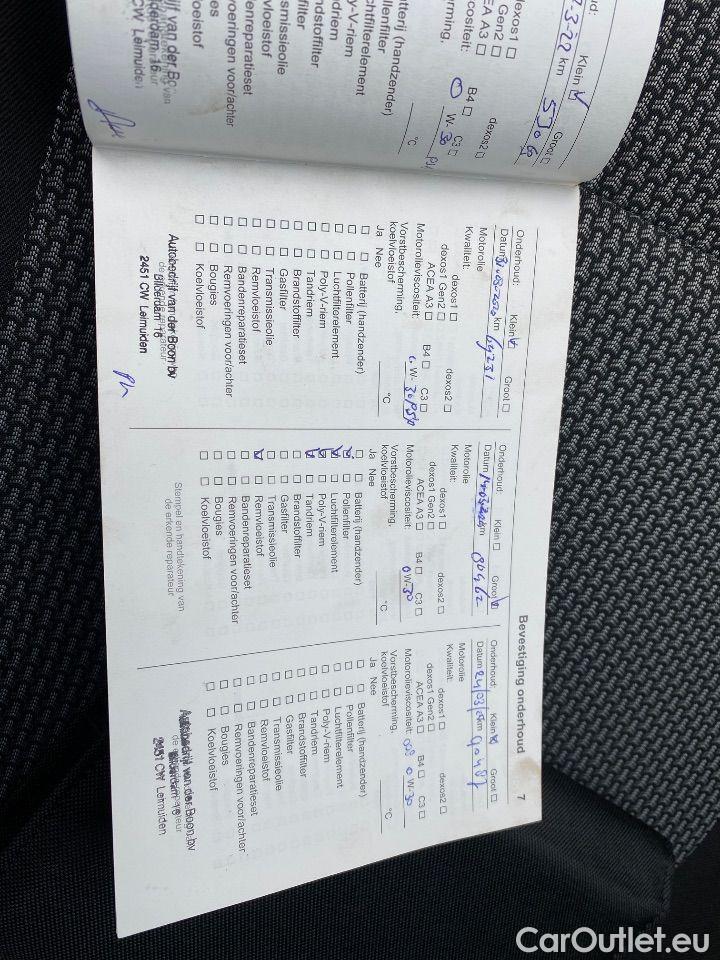 Bevestiging onderhoud 7
Onderhoud: Klein Groot
Datum km 90487
Motorolie
Kwaliteit:
dexos1 dexos2
dexos1 Gen2
ACEA A3 B4 C3
Motorolieviscositeit: 0 W-30
Vorstbescherming,
koelvloeistof °C
Ja Nee
Batterij (handzender)
Pollenfilter
Luchtfilterelement
Poly-V-riem
Tandriem
Brandstoffilter
Gasfilter
Transmissieolie
Remvloeistof
Bandenreparatieset
Remvoeringen voor/achter
Bougies
Koelvloeistof
Autobedrijf van der Boon bv
Bilderdam 16
2451 CW Leimuiden
Onderhoud: Klein Groot
Datum km 80462
Motorolie
Kwaliteit:
dexos1 dexos2
dexos1 Gen2
ACEA A3 B4 C3
Motorolieviscositeit: 0 W-30
Vorstbescherming,
koelvloeistof °C
Ja Nee
Batterij (handzender)
Pollenfilter
Luchtfilterelement
Poly-V-riem
Tandriem
Brandstoffilter
Gasfilter
Transmissieolie
Remvloeistof
Bandenreparatieset
Remvoeringen voor/achter
Bougies
Koelvloeistof
Stempel en handtekening van
de erkende reparateur
Onderhoud: Klein Groot
Datum km 69231
Motorolie
Kwaliteit:
dexos1 dexos2
dexos1 Gen2
ACEA A3 B4 C3
Motorolieviscositeit: W-
Vorstbescherming,
koelvloeistof °C
Ja Nee
Batterij (handzender)
Pollenfilter
Luchtfilterelement
Poly-V-riem
Tandriem
Brandstoffilter
Gasfilter
Transmissieolie
Remvloeistof
Bandenreparatieset
Remvoeringen voor/achter
Bougies
Koelvloeistof
Autobedrijf van der Boon bv
de erkende reparateur
Bilderdam 16
2451 CW Leimuiden
ud: Klein Groot
-3-22 km
dexos1 dexos2
Gen2
EA A3 B4 C3
scositeit: 0 W-30
rming,
°C
Batterij (handzender)
llenfilter
chtfilterelement
ly-V-riem
ndriem
andstoffilter
filter
nsmissieolie
mvloeistof
ndenreparatieset
mvoeringen voor/achter
ugies
elvloeistof
ijf van der Bo
ilderdam 16
CW Leimuiden
CarOutlet.eu